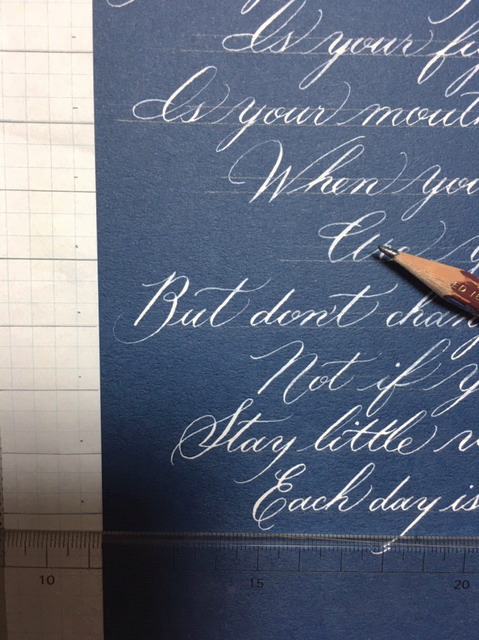 Is your fi
Is your mouth
When you
Are y
But don't chang
Not if y
Stay little v
Each day is
10 15 20